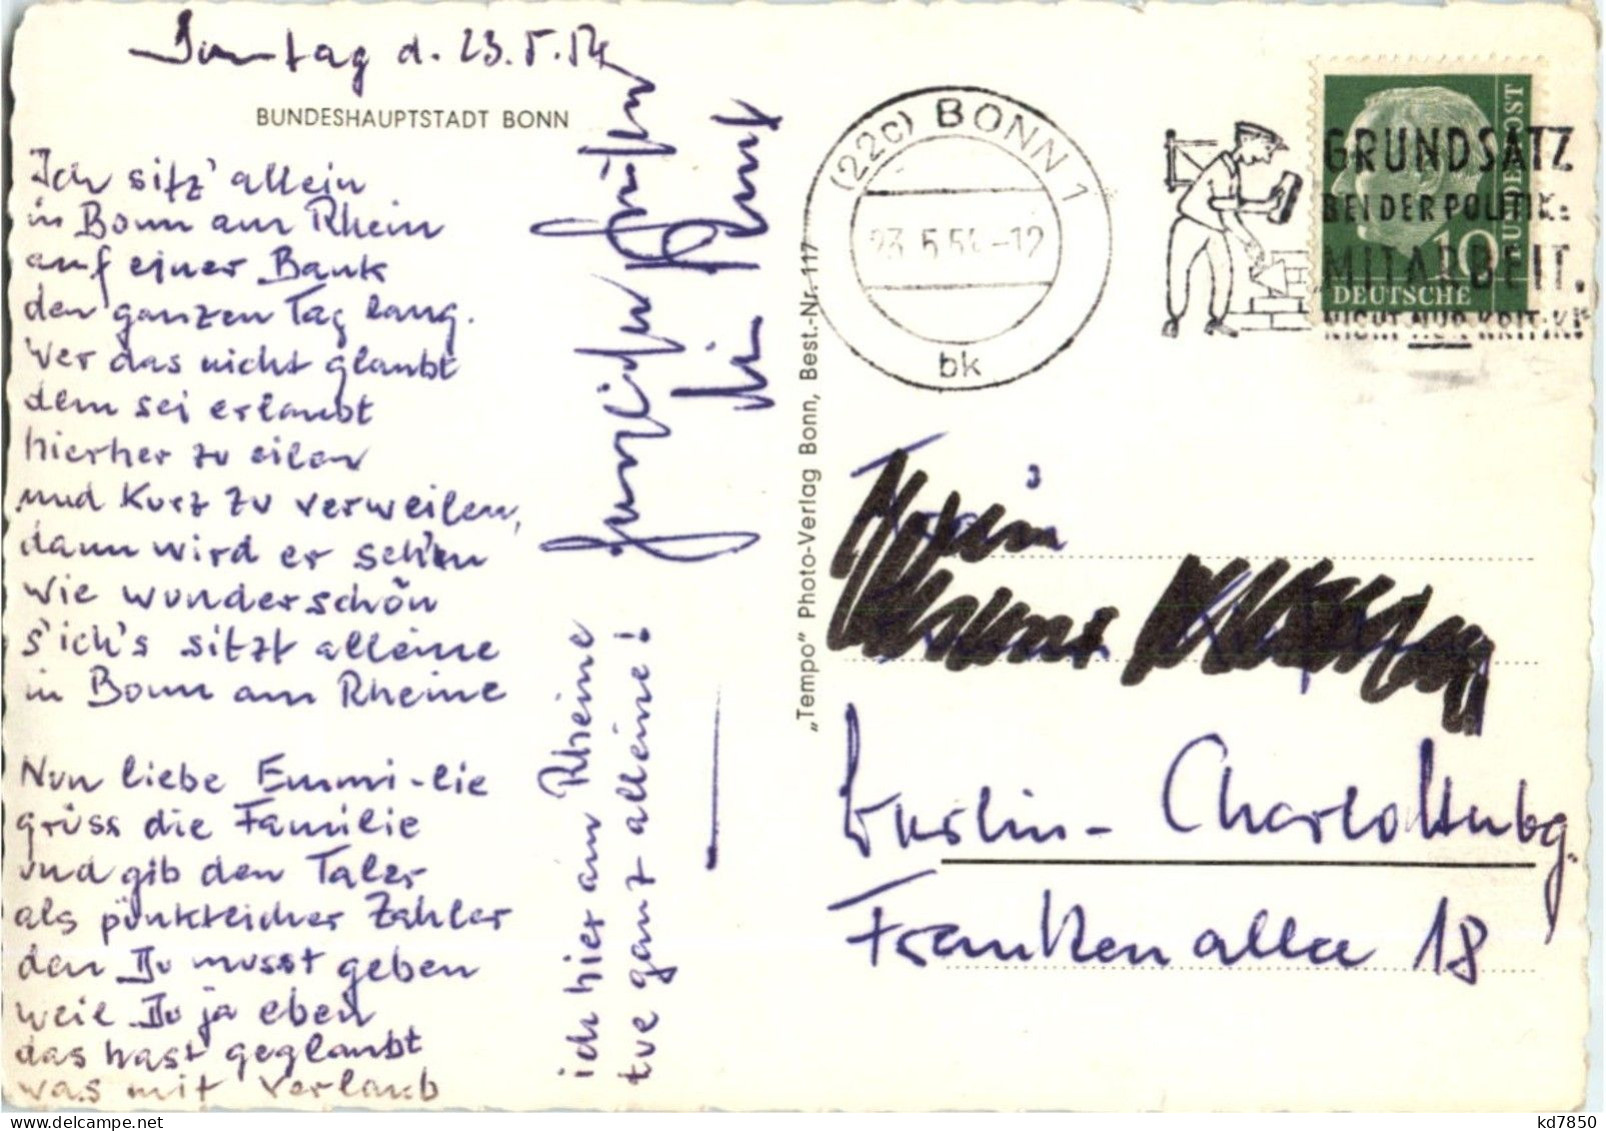 Sonntag d. 23.5.54
BUNDESHAUPTSTADT BONN
Ich sitz' allein
in Bonn am Rhein
auf einer Bank
den ganzen Tag lang.
Wer das nicht glaubt
dem sei erlaubt
hierher zu eilen
und kurz zu verweilen,
dann wird er seh'n
wie wunderschön
s'ich's sitzt alleine
in Bonn am Rheine
Nun liebe Emmi-lie
grüss die Familie
und gib den Taler
als pünktlicher Zahler
den Du musst geben
weil Du ja eben
das hast geglaubt
was mit Verlaub
ich hier am Rheine
tue ganz alleine!
Herzlichen
„Tempo" Photo-Verlag Bonn, Best.-Nr. 117
(22c) BONN 1
23.5.54-12
bk
GRUNDSATZ
BEI DER POLITIK:
MITARBEIT,
NICHT NUR KRITIK!
10
DEUTSCHE
BUNDESPOST
Berlin-Charlottenbg.
Frankenallee 18
kd7850